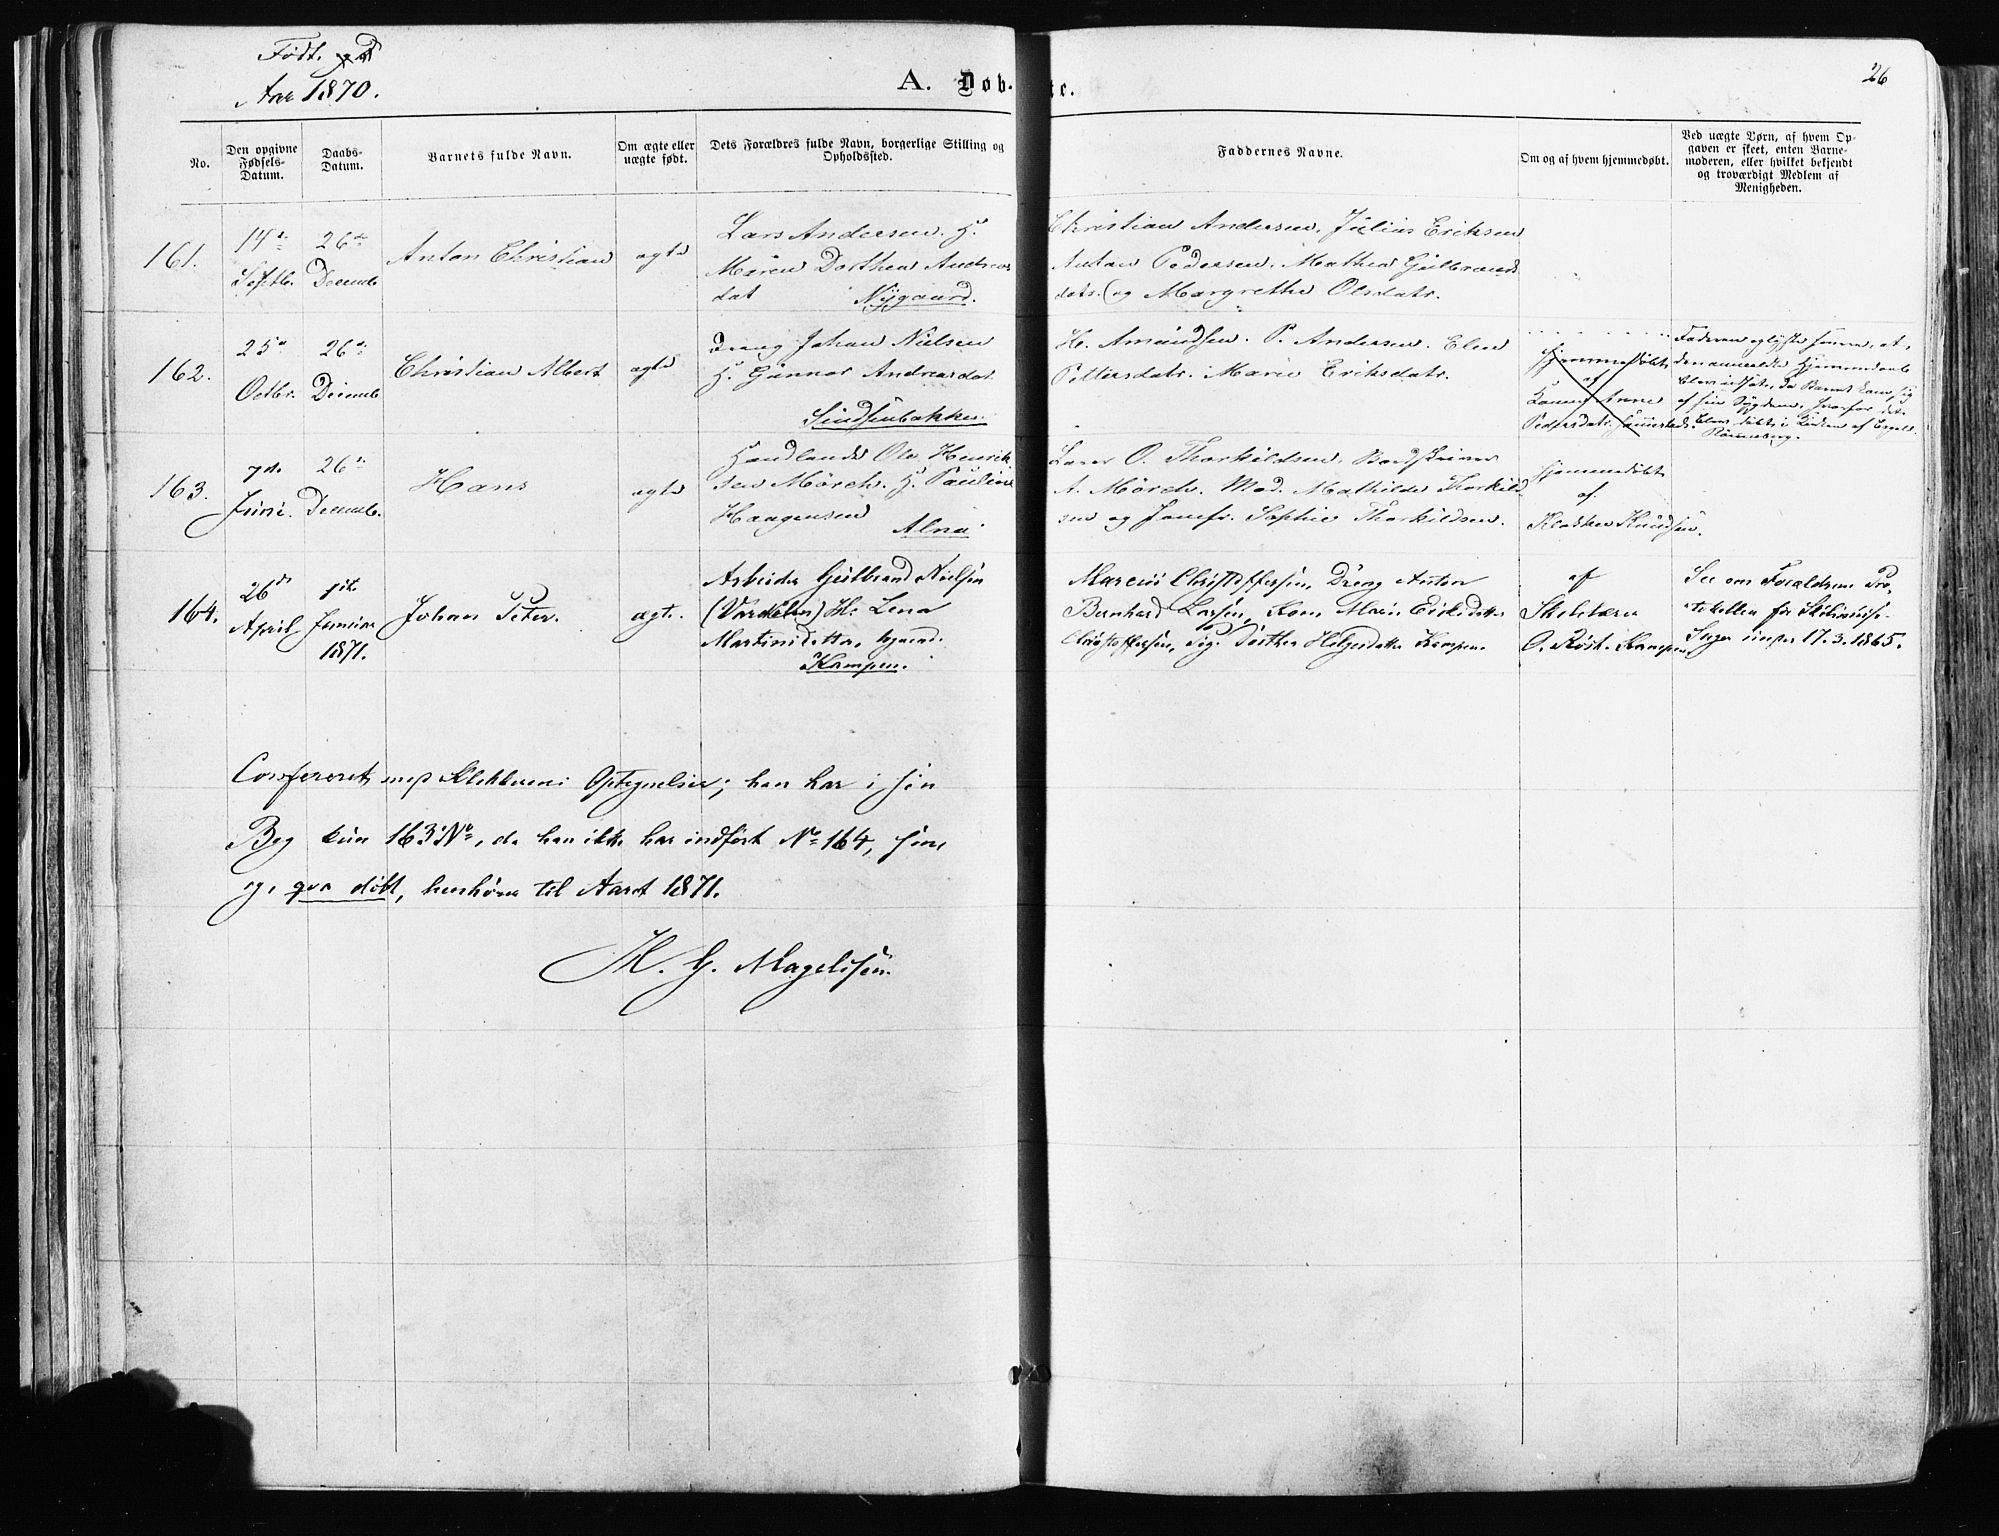 Født.
Aar 1870.
A. Døb- te.
26
No.
Den opgivne Fødsels-Datum.
Daabs-Datum.
Barnets fulde Navn.
Om ægte eller uægte født.
Dets Forældres fulde Navn, borgerlige Stilling og Opholdssted.
Faddernes Navne.
Om og af hvem hjemmedøbt.
Ved uægte Børn, af hvem Opgaven er skeet, enten Barnemoderen, eller hvilket bekjendt og troværdigt Medlem af Menigheden.
161.
14de Septb.
26de Decemb.
Anton Christian
ægte
Lars Andersen. H.
Maren Dorthea Andreas
dat Nygaard.
Christian Andersen. Julius Eriksen
Anton Pedersen. Mathea Gulbrands
datr. og Margrethe Olsdatr.
162.
25de Octbr.
26de Decemb.
Christian Albert
ægte
Dreng Johan Nielsen
H. Gunnor Andreasdat.
Sindsenbakken.
H. Amundsen. P. Andersen. Elen
Pettersdatr. Marie Eriksdatr.
Hjemmedøbt
af
Anne
Pedersdatr.
163.
7de Juni.
26de Decemb.
Hans
ægte
Handlende Ole Henrik
sen Mörch. H. Pauline
Haagensen
Alna
Lærer O. Thorkildsen.
A. Mörch. Mad. Mathilde Thorkild
sen og Jomfr. Sophie Thorkildsen.
Hjemmedøbt
af
Klokker Knudsen.
164.
26de April
1ste Januar 1871.
Johan Peter.
ægte.
Arbeider Gulbrand Nielsen
H. Lena
Martinsdatter,
Kampen.
Marcus Christoffersen, Dreng Anton
Bernhard Larsen, Kone Marie Eriksdatter
Christoffersen, Pig. Dorthea Holgersdatter Kampen.
af
Skolelærer
O. Röst. Kampen
See om Forældrene Pro-
tokollen for
Sager 17.3.1865.
Confereret med Klokkerens Optegnelser; han har i sin
Bog kun 163 No, da han ikke har indført No 164, som
og, qva døbt, henhører til Aaret 1871.
H. G. Magelssen.